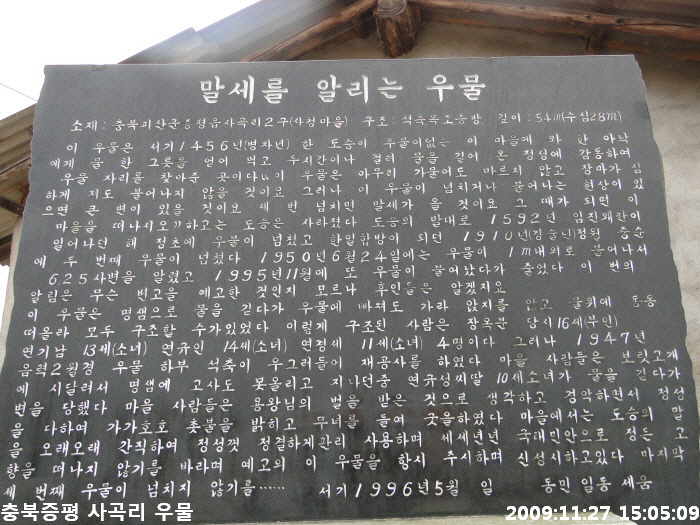 말세를 알리는 우물
소재 : 충북괴산군증평읍사곡리2구(사청마을) 구조 : 석축목조승방 깊이 : 5.4m(수심2.8m)
이 우물은 서기1456년(병자년) 한 도승이 우물이없는 이 마을에 와 한 아낙
에게 물 한 그릇을 얻어 먹고 두시간이나 걸려 물을 길어 온 정성에 감동하여
우물 자리를 찾아준 곳이다 이 우물은 아무리 가물어도 마르지 않고 장마가 심
하게 지도 불어나지 않을 것이요 그러나 이 우물이 넘치거나 불어나는 현상이 있
으면 큰 변이 있을 것이요 세 번 넘치면 말세가 올 것이요 그 때가 되면 이
마을을 떠나시오 하고는 도승은 사라졌다 도승의 말대로 1592년 임진왜란이
일어나던 해 정초에 우물이 넘쳤고 한일합방이 되던 1910년(경술년)정월 중순
에 두 번째 우물이 넘쳤다 1950년6월24일에는 우물이 1m내외로 불어나서
625사변을 알렸고 1995년11월에 또 우물이 불어났다가 줄었다 이 번의
알림은 무슨 변고을 예고한 것인지 모르나 후인들은 알겠지요
이 우물은 명샘으로 물을 긷다가 우물에 빠져도 가라 앉지를 않고 물위에 둥둥
떠올라 모두 구조할 수가있었다 이렇게 구조된 사람은 장옥분 당시16세(부인)
연기남 13세(소녀) 연규인 14세(소녀) 연경세 11세(소녀) 4명이다 그러나 1947년
음력2월경 우물 하부 석축이 우그러들어 재공사를 하였다 마을 사람들은 보릿고개
에 시달려서 명샘에 고사도 못올리고 지나던중 연규성씨딸 10세소녀가 물을 긷다가
변을 당했다 마을 사람들은 용왕님의 벌을 받은 것으로 생각하고 경악하면서 정성
을 다하여 가가호호 촛불을 밝히고 무녀를 들여 굿을하였다 마을에서는 도승의 말
을 오래오래 간직하여 정성껏 정결하게관리 사용하며 세세년년 국태민안으로 정든 고
향을 떠나지 않기를 바라며 예고의 이 우물을 항시 주시하며 신성시하고있다 마지막
세 번째 우물이 넘치지 않기를······ 서기1996년5월 일 동민 일동 세움
충북증평 사곡리 우물
2009:11:27 15:05:09